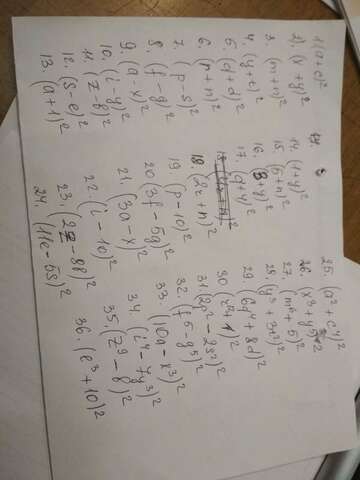 1) (a+c)²
2). (x+y)²
3. (m+n)²
4. (y+t)²
5. (d+d)²
6. (p+n)²
7. (p-s)²
8. (f-g)²
9. (a-x)²
10. (i-y)²
11. (z-8)²
12. (s-e)²
13. (a+1)²
14. (1+y)²
15. (5+n)²
16. (8+g)²
17. (9+y)²
18. (2z+n)²
19 (p-10)²
20 (3f-5g)²
21. (3a-x)²
22. (i-10)²
23. (2z-8g)²
24. (11e-5s)²
25. (a²+c⁴)²
26. (x³+y⁵)²
27. (m⁶+5)²
28. (y³+3t³)²
29. (6d⁴+8d)²
30 (r²+1)²
31 (2p²-2s²)²
32. (f⁵-g⁵)²
33. (10a-x³)²
34. (i⁴-7y³)²
35. (z⁹-8)²
36. (e³+10)²